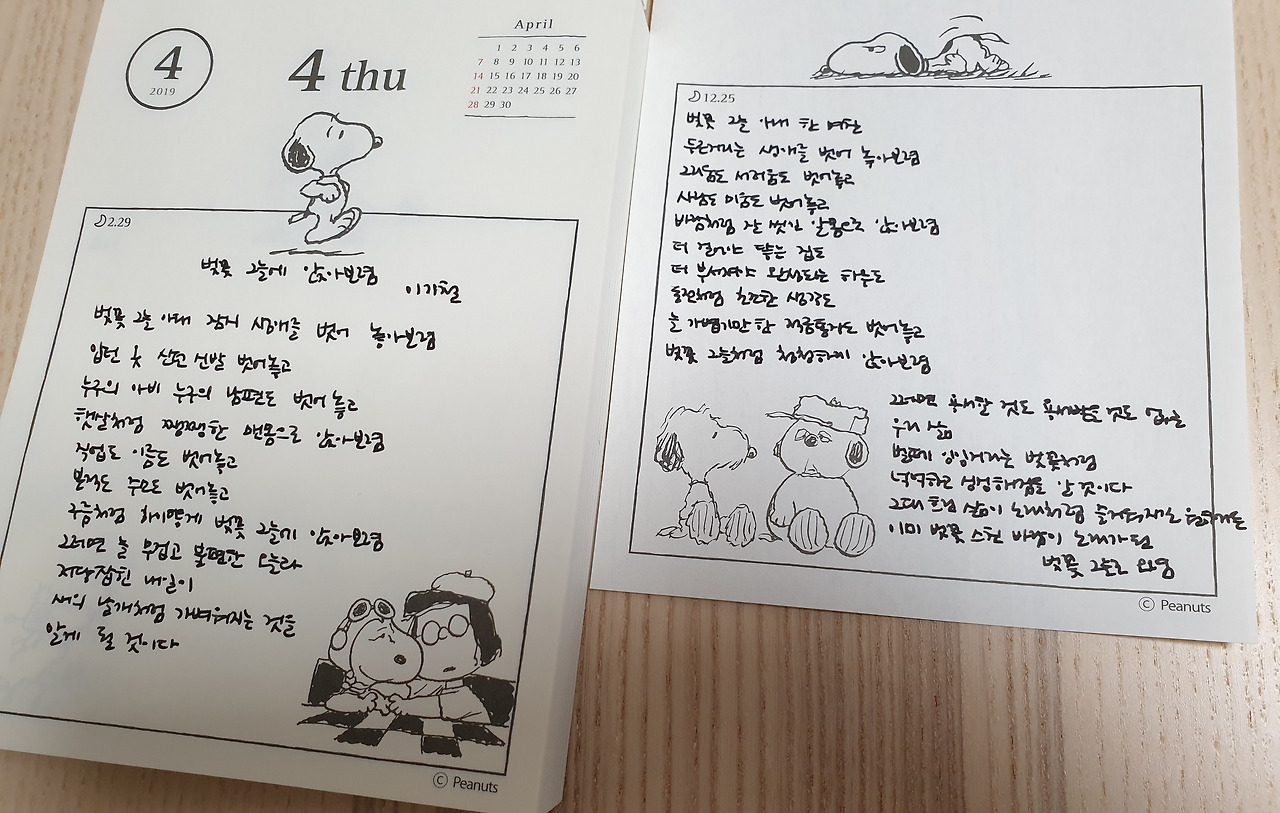 4
2019
4 thu
April
1 2 3 4 5 6
7 8 9 10 11 12 13
14 15 16 17 18 19 20
21 22 23 24 25 26 27
28 29 30
2.29
벚꽃 그늘에 앉아보렴
이기철
벚꽃 그늘 아래 잠시 생애를 벗어 놓아보렴
입던 옷 신던 신발 벗어놓고
누구의 아비 누구의 남편도 벗어놓고
햇살처럼 쨍쨍한 맨몸으로 앉아보렴
직업도 이름도 벗어놓고
본적도 주소도 벗어놓고
구름처럼 하이얗게 벚꽃 그늘에 앉아보렴
그러면 늘 무겁고 불편한 오늘과
저당잡힌 내일이
새의 날개처럼 가벼워지는 것을
알게 될 것이다
© Peanuts
12.25
벚꽃 그늘 아래 한 며칠
두근거리는 생애를 벗어 놓아보렴
그리움도 서러움도 벗어놓고
사랑도 미움도 벗어놓고
바람처럼 잘 씻긴 알몸으로 앉아보렴
더 걸어야 닿는 집도
더 부서져야 완성되는 하루도
동전처럼 초조한 생각도
늘 가볍기만 한 적금통장도 벗어놓고
벚꽃 그늘처럼 청정하게 앉아보렴
그러면 용서할 것도 용서받을 것도 없는
우리 삶
벌떼 잉잉거리는 벚꽃처럼
넉넉하고 싱싱해짐을 알 것이다
그대 흐린 삶이 노래처럼 즐거워지길 원하거든
이미 벚꽃 스친 바람이 노래가 된
벚꽃 그늘로 오렴
© Peanuts